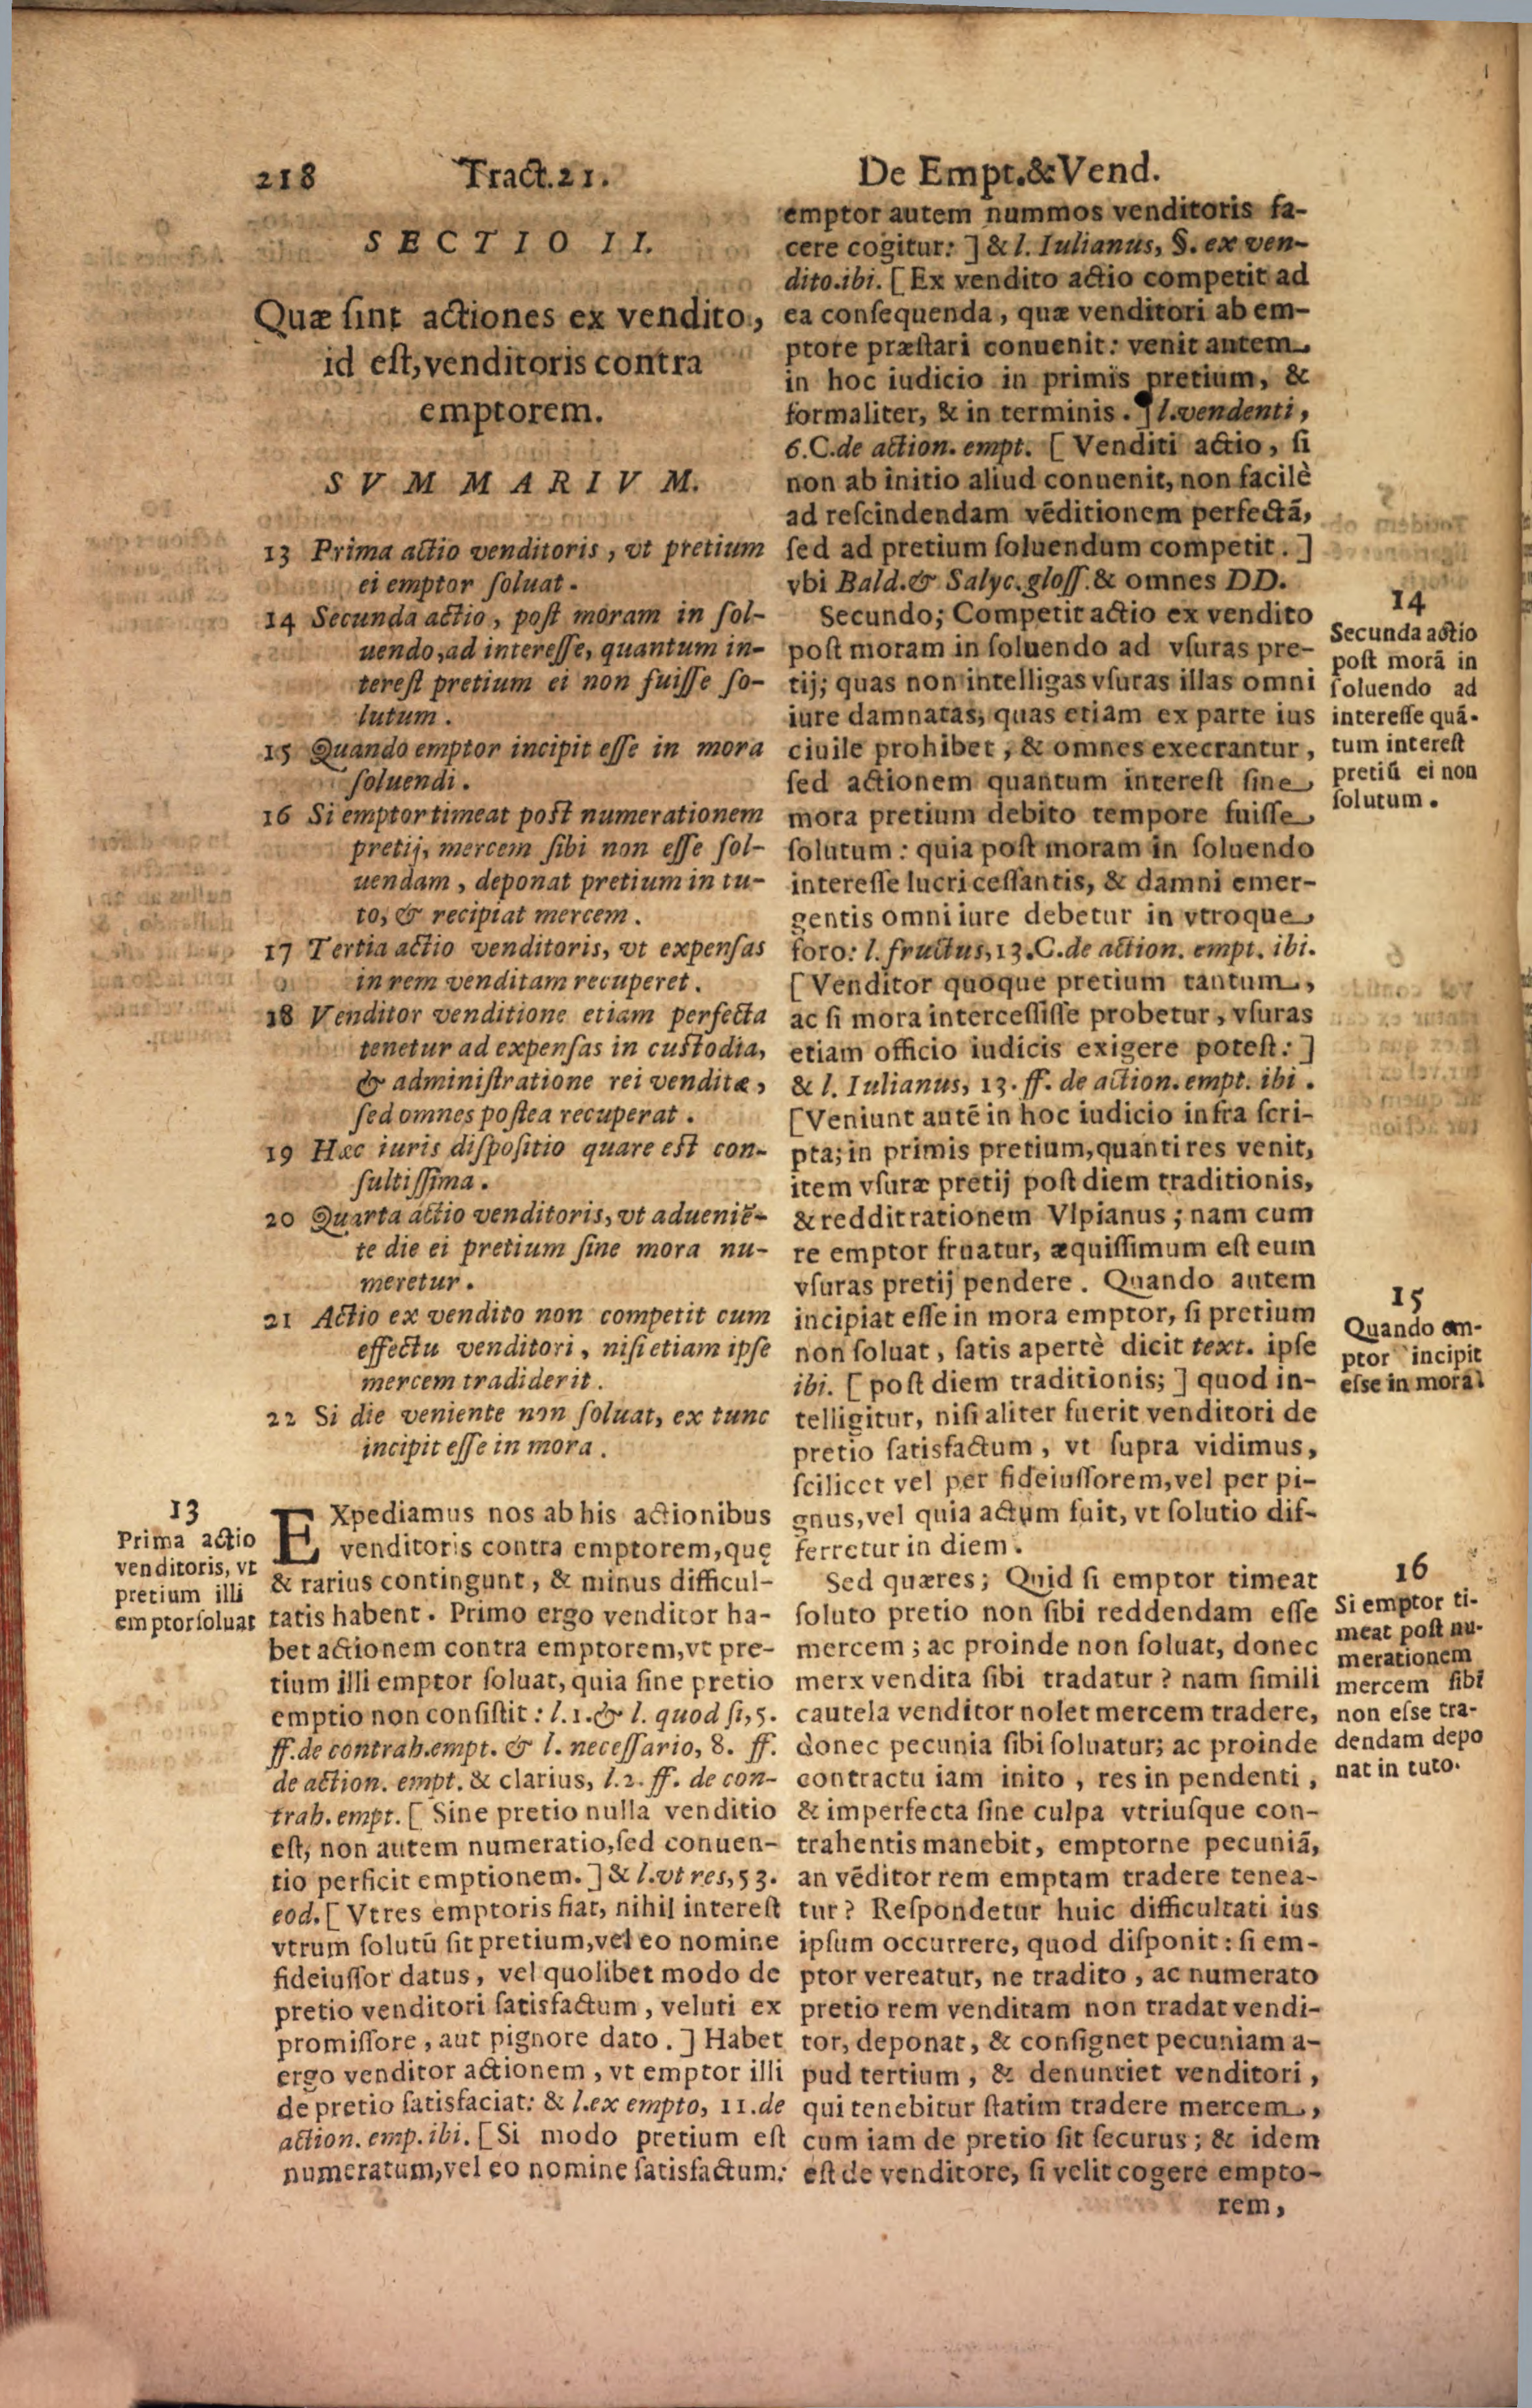 218 Tract.21. De Empt.&Vend.
SECTIO II.
Quæ ſint actiones ex vendito,
id eſt,venditoris contra
emptorem.
SVMMARIVM.
13 Prima actio venditoris, vt pretium
ei emptor ſoluat.
14 Secunda actio, poſt moram in ſol-
uendo,ad intereſſe, quantum in-
tereſt pretium ei non fuiſſe ſo-
lutum.
15 Quando emptor incipit eſſe in mora
ſoluendi.
16 Si emptor timeat poſt numerationem
pretij, mercem ſibi non eſſe ſol-
uendam, deponat pretium in tu-
to, & recipiat mercem.
17 Tertia actio venditoris, vt expenſas
in rem venditam recuperet.
18 Venditor venditione etiam perfecta
tenetur ad expenſas in cuſtodia,
& adminiſtratione rei venditæ,
ſed omnes poſtea recuperat.
19 Hæc iuris diſpoſitio quare eſt con-
ſultiſſima.
20 Quarta actio venditoris, vt aduenię̃-
te die ei pretium ſine mora nu-
meretur.
21 Actio ex vendito non competit cum
effectu venditori, niſi etiam ipſe
mercem tradiderit.
22 Si die veniente non ſoluat, ex tunc
incipit eſſe in mora.
13
Prima actio
venditoris, vt
pretium illi
emptor ſoluat
EXpediamus nos ab his actionibus
venditoris contra emptorem,quę
& rarius contingunt, & minus difficul-
tatis habent. Primo ergo venditor ha-
bet actionem contra emptorem,vt pre-
tium illi emptor ſoluat, quia ſine pretio
emptio non conſiſtit: l.1.& l. quod ſi,5.
ff.de contrah.empt. & l. neceſſario, 8. ff.
de action. empt. & clarius, l.2. ff. de con-
trah.empt. [Sine pretio nulla venditio
eſt, non autem numeratio,ſed conuen-
tio perficit emptionem.] & l.vt res,53.
eod.[Vt res emptoris fiat, nihil intereſt
vtrum ſolutũ ſit pretium,vel eo nomine
fideiuſſor datus, vel quolibet modo de
pretio venditori ſatisfactum, veluti ex
promiſſore, aut pignore dato.] Habet
ergo venditor actionem, vt emptor illi
de pretio ſatisfaciat: & l.ex empto, 11.de
action. emp. ibi. [Si modo pretium eſt
numeratum,vel eo nomine ſatisfactum:
emptor autem nummos venditoris fa-
cere cogitur:] & l. Iulianus, §. ex ven-
dito.ibi. [Ex vendito actio competit ad
ea conſequenda, quæ venditori ab em-
ptore præſtari conuenit: venit autem
in hoc iudicio in primis pretium, &
formaliter, & in terminis.] l.vendenti,
6.C.de action. empt. [Venditi actio, ſi
non ab initio aliud conuenit, non facilè
ad reſcindendam vẽditionem perfectã,
ſed ad pretium ſoluendum competit.]
vbi Bald.& Salyc.gloſſ.& omnes DD.
Secundo; Competit actio ex vendito
poſt moram in ſoluendo ad vſuras pre-
tij; quas non intelligas vſuras illas omni
iure damnatas, quas etiam ex parte ius
ciuile prohibet, & omnes execrantur,
ſed actionem quantum intereſt ſine
mora pretium debito tempore fuiſſe
ſolutum: quia poſt moram in ſoluendo
intereſſe lucri ceſſantis, & damni emer-
gentis omni iure debetur in vtroque
foro: l. fructus,13.C.de action. empt. ibi.
[Venditor quoque pretium tantum,
ac ſi mora interceſſiſſe probetur, vſuras
etiam officio iudicis exigere poteſt:]
& l. Iulianus, 13. ff. de action.empt. ibi.
[Veniunt autẽ in hoc iudicio infra ſcri-
pta; in primis pretium,quanti res venit,
item vſuræ pretij poſt diem traditionis,
& reddit rationem Vlpianus; nam cum
re emptor fruatur, æquiſſimum eſt eum
vſuras pretij pendere. Quando autem
incipiat eſſe in mora emptor, ſi pretium
non ſoluat, ſatis apertè dicit text. ipſe
ibi. [poſt diem traditionis;] quod in-
telligitur, niſi aliter fuerit venditori de
pretio ſatisfactum, vt ſupra vidimus,
ſcilicet vel per fideiuſſorem,vel per pi-
gnus,vel quia actum fuit, vt ſolutio dif-
ferretur in diem.
Sed quæres; Quid ſi emptor timeat
ſoluto pretio non ſibi reddendam eſſe
mercem; ac proinde non ſoluat, donec
merx vendita ſibi tradatur? nam ſimili
cautela venditor nolet mercem tradere,
donec pecunia ſibi ſoluatur; ac proinde
contractu iam inito, res in pendenti,
& imperfecta ſine culpa vtriuſque con-
trahentis manebit, emptorne pecuniã,
an vẽditor rem emptam tradere tenea-
tur? Reſpondetur huic difficultati ius
ipſum occurrere, quod diſponit: ſi em-
ptor vereatur, ne tradito, ac numerato
pretio rem venditam non tradat vendi-
tor, deponat, & conſignet pecuniam a-
pud tertium, & denuntiet venditori,
qui tenebitur ſtatim tradere mercem,
cum iam de pretio ſit ſecurus; & idem
eſt de venditore, ſi velit cogere empto-
rem,
14
Secunda actio
poſt morã in
ſoluendo ad
intereſſe quã-
tum intereſt
pretiũ ei non
ſolutum.
15
Quando em-
ptor incipit
eſse in mora
16
Si emptor ti-
meat poſt nu-
merationem
mercem ſibi
non eſse tra-
dendam depo
nat in tuto.